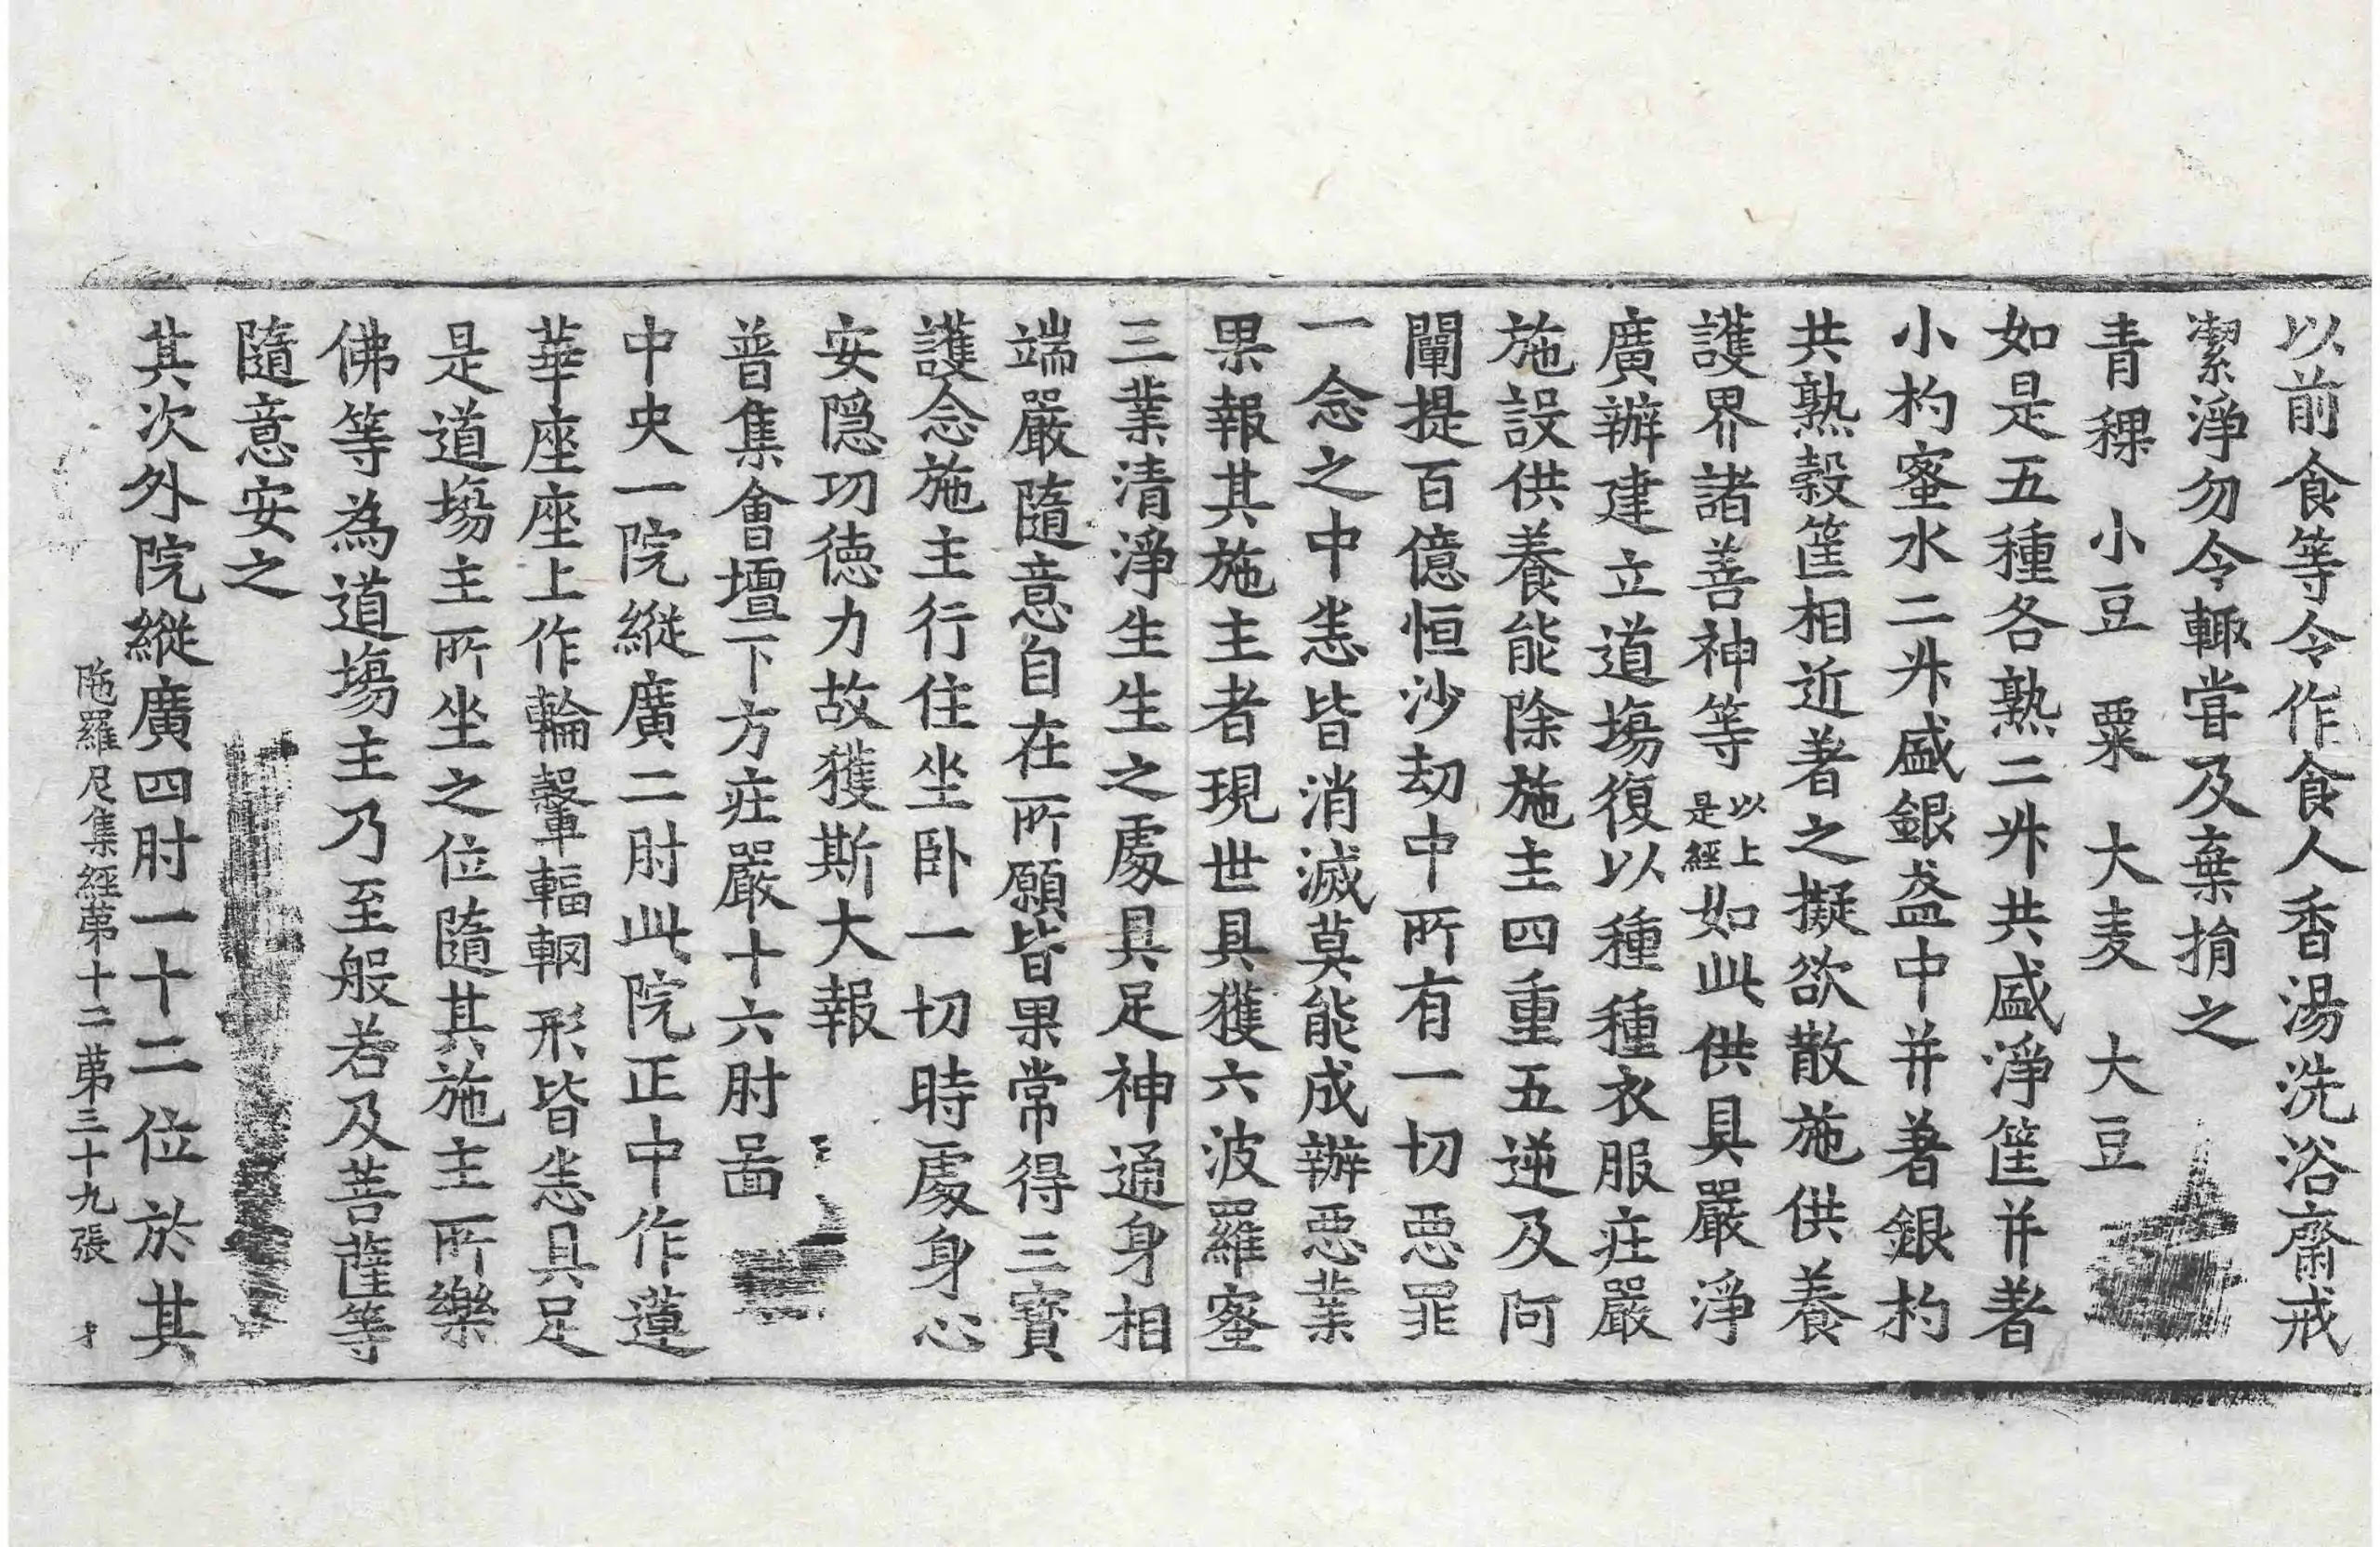 以前食等令作食人香湯洗浴齋戒
潔淨勿令輙甞及棄捐之
青稞 小豆 粟 大麦 大豆
如是五種各熟二升共盛淨筐并著
小杓蜜水二升盛銀盞中并著銀杓
共熟穀筐相近著之擬欲散施供養
護界諸善神等以上是經如此供具嚴淨
廣辦建立道塲復以種種衣服莊嚴
施設供養能除施主四重五逆及阿
闡提百億恒沙劫中所有一切惡罪
一念之中悉皆消滅莫能成辦惡業
果報其施主者現世具獲六波羅蜜
三業清淨生生之處具足神通身相
端嚴隨意自在所願皆果常得三寶
護念施主行住坐卧一切時處身心
安隱功德力故獲斯大報
普集會壇下方莊嚴十六肘啚
中央一院縱廣二肘此院正中作蓮
華座座上作輪轂輻輞形皆悉具足
是道塲主所坐之位隨其施主所樂
佛等為道塲主乃至般若及菩薩等
隨意安之
其次外院縱廣四肘一十二位於其
陁羅尼集經苐十二苐三十九張 才